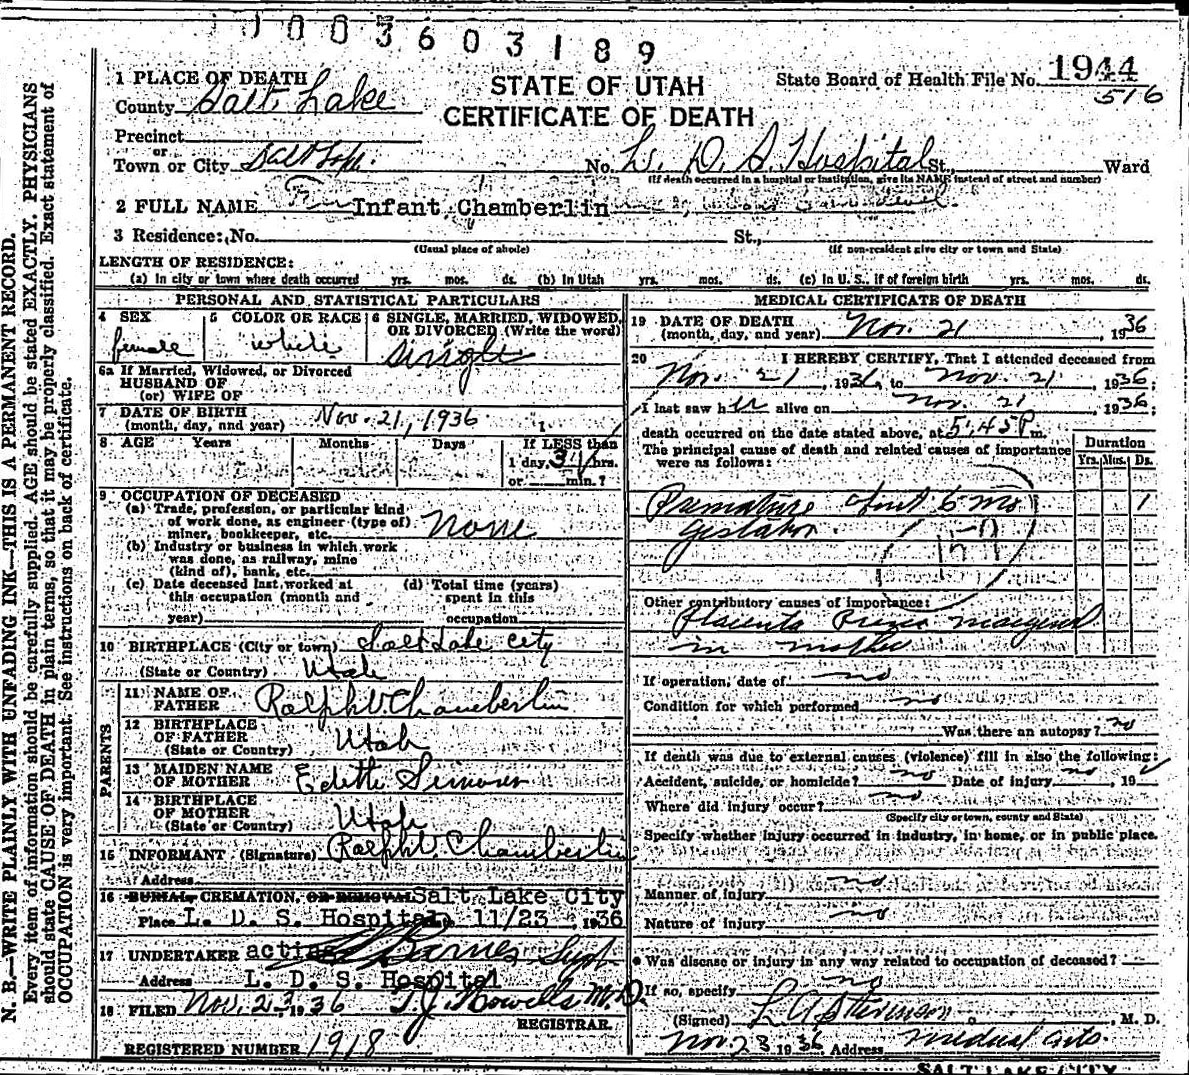 1003603189
1 PLACE OF DEATH
STATE OF UTAH
State Board of Health File No. 1944
County Salt Lake
516
CERTIFICATE OF DEATH
Precinct
or
Town or City Salt Lake No. L. D. S. Hospital St., Ward
(If death occurred in a hospital or institution, give its NAME instead of street and number)
2 FULL NAME Infant Chamberlin
3 Residence: No. St.,
(Usual place of abode) (If non-resident give city or town and State)
LENGTH OF RESIDENCE:
(a) In city or town where death occurred yrs. mos. ds. (b) In Utah yrs. mos. ds. (c) In U. S., if of foreign birth yrs. mos. ds.
PERSONAL AND STATISTICAL PARTICULARS
4 SEX 5 COLOR OR RACE 6 SINGLE, MARRIED, WIDOWED,
OR DIVORCED (Write the word)
female white single
6a If Married, Widowed, or Divorced
HUSBAND OF
(or) WIFE OF
7 DATE OF BIRTH
(month, day, and year) Nov. 21, 1936
8 AGE Years Months Days If LESS than
1 day, 3 hrs.
or min.?
9 OCCUPATION OF DECEASED
(a) Trade, profession, or particular kind
of work done, as engineer (type of)
miner, bookkeeper, etc. none
(b) Industry or business in which work
was done, as railway, mine
(kind of), bank, etc.
(c) Date deceased last worked at (d) Total time (years)
this occupation (month and spent in this
year) occupation
10 BIRTHPLACE (City or town) Salt Lake City
(State or Country) Utah
PARENTS
11 NAME OF
FATHER Ralph V Chamberlin
12 BIRTHPLACE
OF FATHER
(State or Country) Utah
13 MAIDEN NAME
OF MOTHER Edette
14 BIRTHPLACE
OF MOTHER
(State or Country) Utah
15 INFORMANT (Signature) Ralph V. Chamberlin
Address
16 BURIAL, CREMATION, OR REMOVAL Salt Lake City
Place L. D. S. Hospital 11/23, 1936
17 UNDERTAKER acting Barnes Supt
Address L. D. S. Hospital
18 FILED Nov. 23 1936 T. J. Howells, M.D.
REGISTRAR.
REGISTERED NUMBER 1918
MEDICAL CERTIFICATE OF DEATH
19 DATE OF DEATH
(month, day, and year) Nov. 21, 1936
20 I HEREBY CERTIFY, That I attended deceased from
Nov. 21, 1936, to Nov. 21, 1936;
I last saw her alive on Nov. 21, 1936;
death occurred on the date stated above, at 5:45 P m.
The principal cause of death and related causes of importance
were as follows:
Duration
Yrs. Mos. Ds.
Premature 6 mo 1
gestation.
Other contributory causes of importance:
Placenta Previa marginal
in mother
If operation, date of no
Condition for which performed no
Was there an autopsy? no
If death was due to external causes (violence) fill in also the following:
Accident, suicide, or homicide? no Date of injury no, 19
Where did injury occur? no
(Specify city or town, county and State)
Specify whether injury occurred in industry, in home, or in public place.
Manner of injury no
Nature of injury no
Was disease or injury in any way related to occupation of deceased?
If so, specify no
(Signed) L A Stevenson, M. D.
Nov 23 1936 Address Medical Arts.
SALT LAKE CITY
N. B.—WRITE PLAINLY WITH UNFADING INK—THIS IS A PERMANENT RECORD.
Every item of information should be carefully supplied. AGE should be stated EXACTLY. PHYSICIANS
should state CAUSE OF DEATH in plain terms, so that it may be properly classified. Exact statement of
OCCUPATION is very important. See instructions on back of certificate.